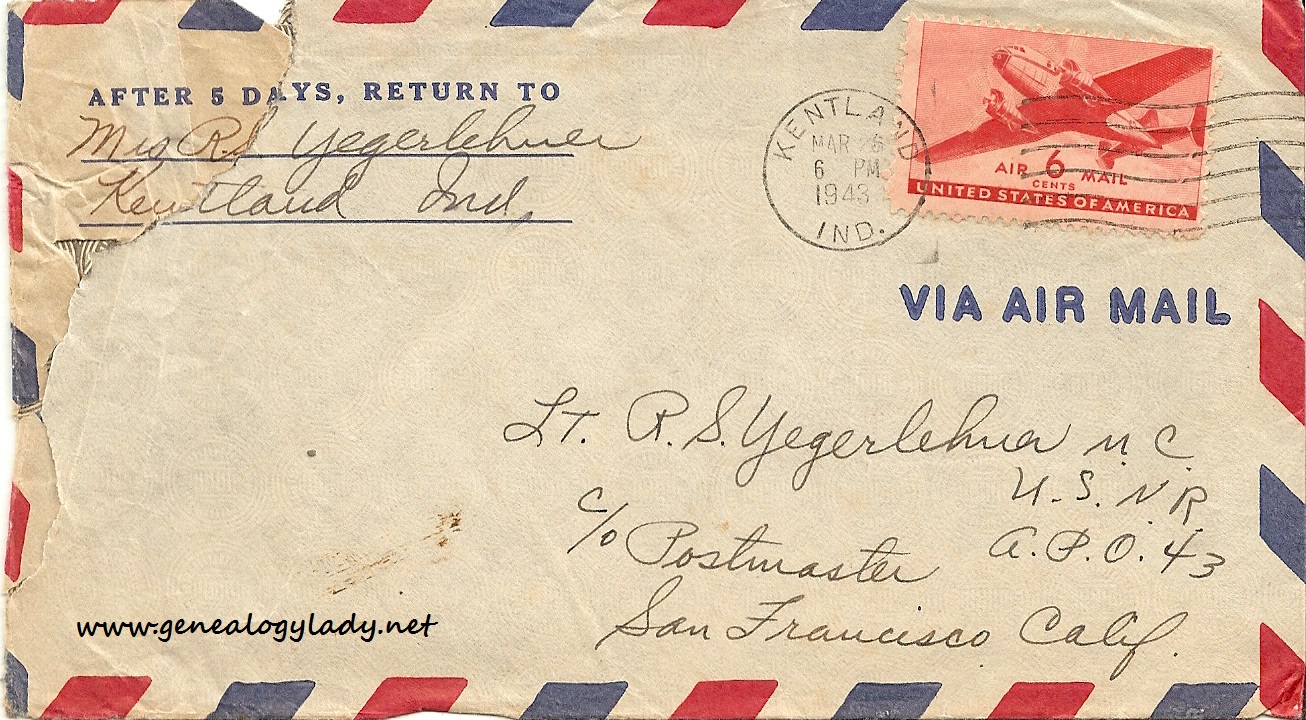 AFTER 5 DAYS, RETURN TO
Mrs R.S. Yegerlehner
Kentland Ind.
KENTLAND
MAR 26
6 PM
1943
IND.
AIR 6 MAIL
CENTS
UNITED STATES OF AMERICA
VIA AIR MAIL
Lt. R.S. Yegerlehner M.C.
U.S.N.R
c/o Postmaster A.P.O. 43
San Francisco Calif.
www.genealogylady.net